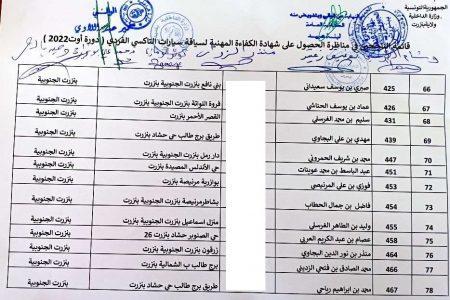 الجمهورية التونسية
وزارة الداخلية
ولاية بنزرت
قائمة الناجحين في مناظرة الحصول على شهادة الكفاءة المهنية لسياقة سيارات التاكسي الفردي ( دورة أوت2022 )
66 425 صبري بن يوسف سعيداني بني نافع بنزرت الجنوبية بنزرت بنزرت الجنوبية
67 426 عماد بن يوسف الحناشي فروة اللواتة بنزرت الجنوبية بنزرت الجنوبية
68 431 سليم بن محمد الغرسلي القصر الأحمر بنزرت بنزرت الجنوبية
69 439 مهدي بن علي البجاوي طريق برج طالب حي حشاد بنزرت بنزرت الجنوبية
70 447 محمد بن شريف الحمروني دار رمل بنزرت الجنوبية بنزرت الجنوبية
71 451 عبد الباسط بن محمد عوينات حي الأندلس المصيدة بنزرت بنزرت الجنوبية
72 453 فوزي بن علي المرنيصي بوازرية مرنيصة بنزرت بنزرت الجنوبية
73 454 فاضل بن جمال الحطاب بشاطرمرنيصة بنزرت الجنوبية بنزرت بنزرت الجنوبية
74 455 وليد بن الطاهر الغرسلي منزل اسماعيل بنزرت الجنوبية بنزرت الجنوبية
75 458 عصام بن عبد الكريم العربي حي الصنوبر حشاد بنزرت 26 بنزرت الجنوبية
76 460 منذر بن نور الدين البجاوي زرقون بنزرت الجنوبية بنزرت الجنوبية
77 466 محمد الصادق بن فتحي الزديني برج طالب ب الشمالية بنزرت بنزرت الجنوبية
78 467 محمد بن ابراهيم رياحي طريق برج طالب حي حشاد بنزرت بنزرت الجنوبية